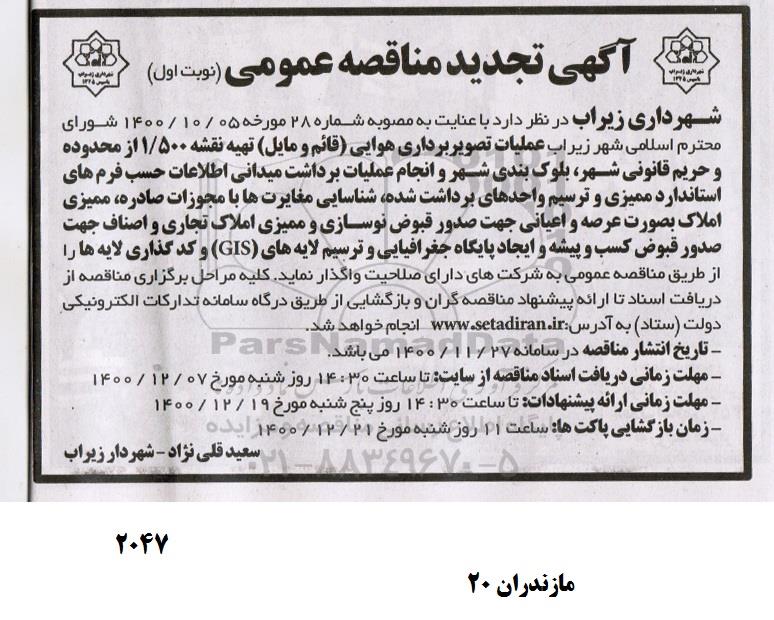 آگهی تجدید مناقصه عمومی (نوبت اول)
شهرداری زیراب
تاسیس ۱۳۴۵
شهرداری زیراب
تاسیس ۱۳۴۵
شهرداری زیراب در نظر دارد با عنایت به مصوبه شماره ۲۸ مورخه ۰۵ / ۱۰ / ۱۴۰۰ شورای
محترم اسلامی شهر زیراب عملیات تصویربرداری هوایی (قائم و مایل) تهیه نقشه ۱/۵۰۰ از محدوده
و حریم قانونی شهر، بلوک بندی شهر و انجام عملیات برداشت میدانی اطلاعات حسب فرم های
استاندارد ممیزی و ترسیم واحدهای برداشت شده، شناسایی مغایرت ها با مجوزات صادره، ممیزی
املاک بصورت عرصه و اعیانی جهت صدور قبوض نوسازی و ممیزی املاک تجاری و اصناف جهت
صدور قبوض کسب و پیشه و ایجاد پایگاه جغرافیایی و ترسیم لایه های (GIS) و کد گذاری لایه ها را
از طریق مناقصه عمومی به شرکت های دارای صلاحیت واگذار نماید. کلیه مراحل برگزاری مناقصه از
دریافت اسناد تا ارائه پیشنهاد مناقصه گران و بازگشایی از طریق درگاه سامانه تدارکات الکترونیکی
دولت (ستاد) به آدرس: www.setadiran.ir انجام خواهد شد.
- تاریخ انتشار مناقصه در سامانه ۲۷ / ۱۱ / ۱۴۰۰ می باشد.
- مهلت زمانی دریافت اسناد مناقصه از سایت: تا ساعت ۳۰ : ۱۴ روز شنبه مورخ ۰۷ / ۱۲ / ۱۴۰۰
- مهلت زمانی ارائه پیشنهادات: تا ساعت ۳۰ : ۱۴ روز پنج شنبه مورخ ۱۹ / ۱۲ / ۱۴۰۰
- زمان بازگشایی پاکت ها: ساعت ۱۱ روز شنبه مورخ ۲۱ / ۱۲ / ۱۴۰۰
سعید قلی نژاد - شهردار زیراب
ParsNamadData
پایگاه اطلاع رسانی مناقصه و مزایده
۰۲۱-۸۸۳۴۹۶۷۰-۵
۲۰۴۷
مازندران ۲۰